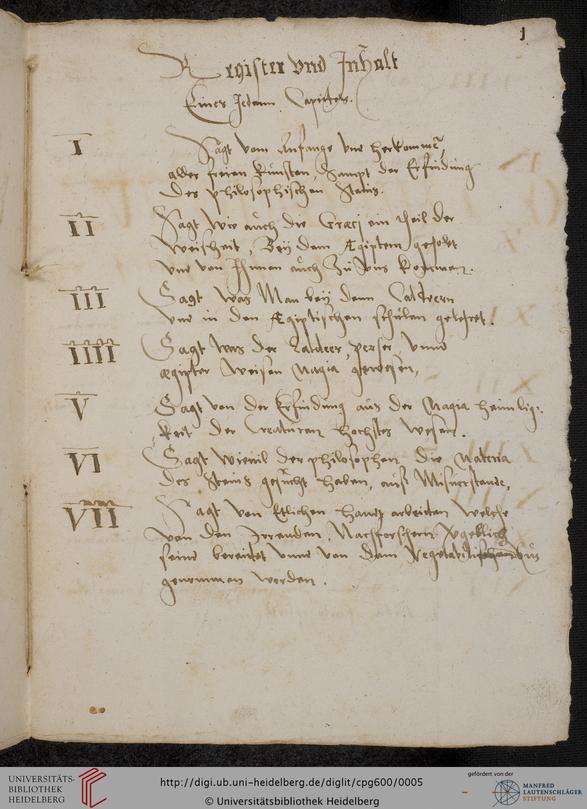 1
Register vnd Inhalt
Eines Jedenn Capittels.
I
Sagt vom Anfange vnd herkommen̄
aller freien künsten, Sampt der Erfindung
des philosophischen Steins.
II
Sagt Wie auch die Græci ein theil der
Weisheit, Beÿ dem Ægiptern geholt
vnd von Ihnen auch zu Vns kommen.
III
Sagt was Man beÿ denn Caldeern
vnd in den Ægiptischen schulen gelehret.
IIII
Sagt was der Caldeer, perser, vnnd
ægipter Weisen Magia gewesen,
V
Sagt von der Erfindung aus der Magia heimlig-
keit der Creaturen hochstes wesen.
VI
Sagt Wieuil der philosophen die Materia
des Steins gesucht haben, auß Misuerstande,
VII
Sagt von Etlichen harttz arbeiten welche
von den Irrenden Nachforschern Vergeblich
seind bereitet vnnd von dem Vegetabilischen
genommen werden.
UNIVERSITÄTS-
BIBLIOTHEK
HEIDELBERG
http://digi.ub.uni-heidelberg.de/diglit/cpg600/0005
© Universitätsbibliothek Heidelberg
gefördert von der
MANFRED
LAUTENSCHLÄGER
STIFTUNG